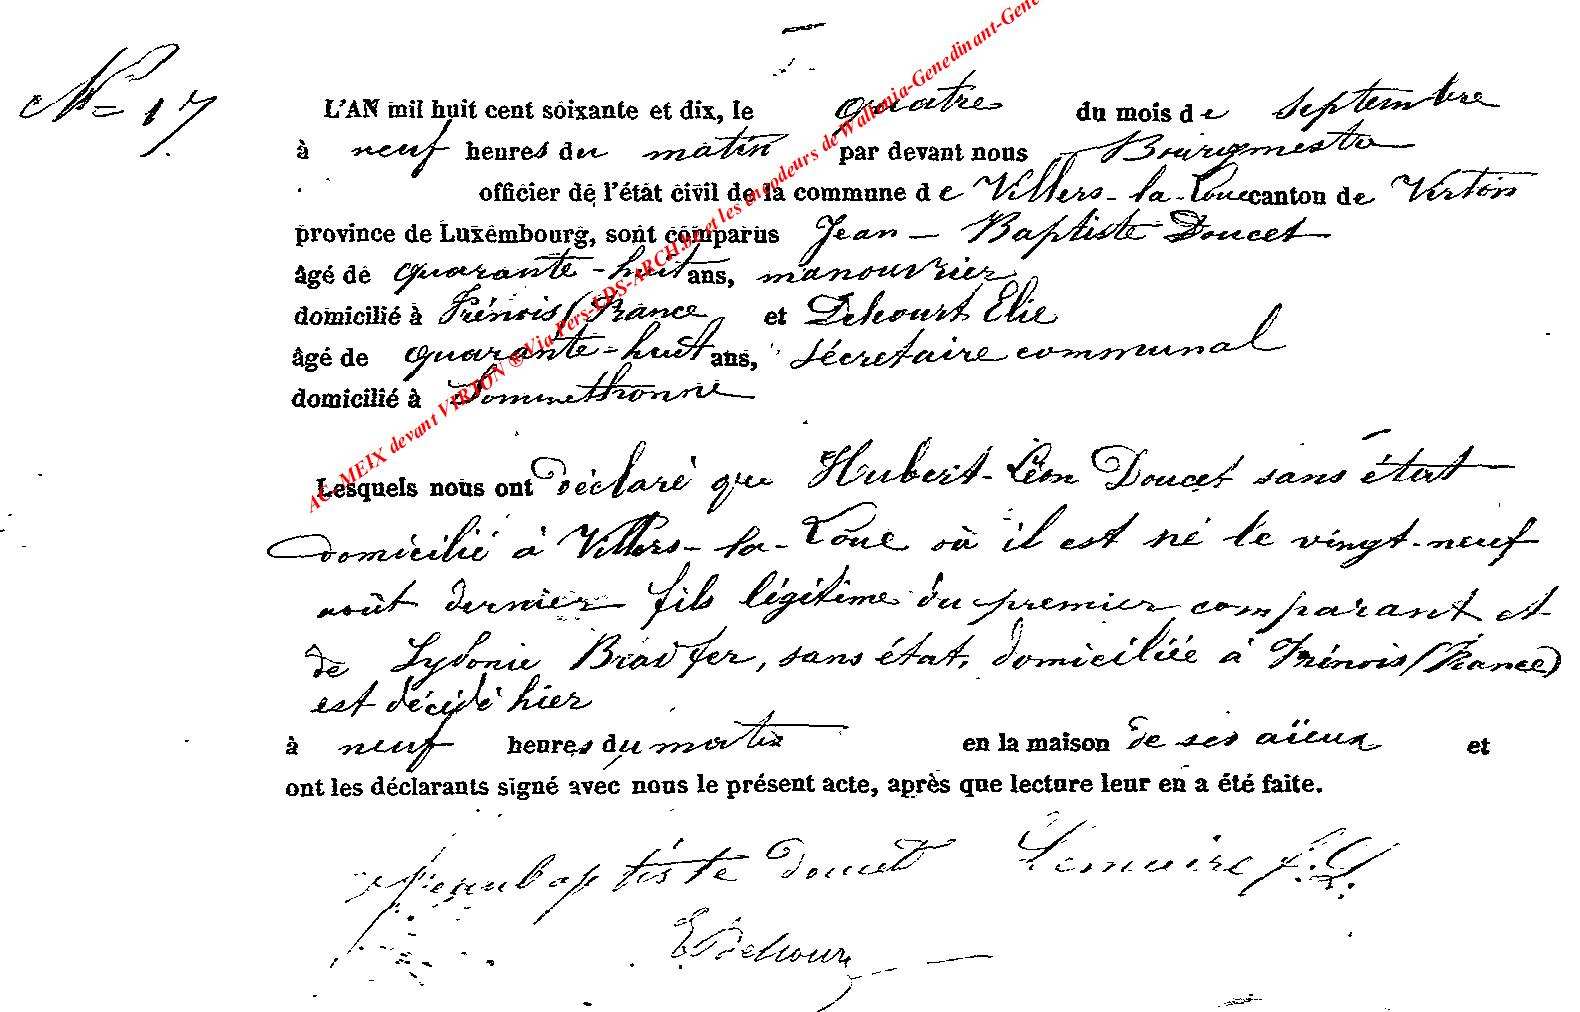 No 17
L'AN mil huit cent soixante et dix, le quatre du mois de septembre
à neuf heures du matin par devant nous Bourgmestre
officier de l'état civil de la commune de Villers-la-Loue canton de Virton
province de Luxembourg, sont comparus Jean-Baptiste Doucet
âgé de quarante-huit ans, manouvrier
domicilié à Frénois (France et Delcourt Elie
âgé de quarante-huit ans, sécretaire communal
domicilié à Sommethonne
Lesquels nous ont déclaré que Hubert-Léon Doucet sans état
domicilié à Villers-la-Loue où il est né le vingt-neuf
août dernier fils légitime du premier comparant et
de Sydonie Bradfer, sans état, domiciliée à Frénois (France)
est décédé hier
à neuf heures du matin en la maison de ses aïeux et
ont les déclarants signé avec nous le présent acte, après que lecture leur en a été faite.
Jeanbaptiste doucet Lemaire f.
E Delcour
AC MEIX devant VIRTON ® Via Pers-LDS-ARCH.be et les encodeurs de Wallonia-Genedinant-Gene